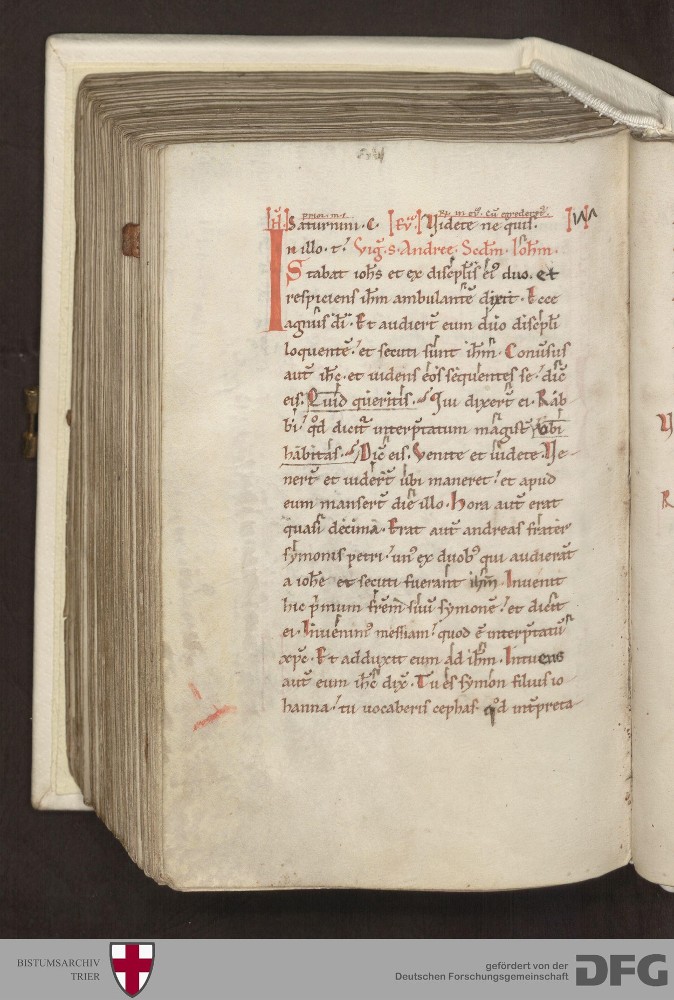 Saturnini · C · Ev̄ Videte ne quis.
In illo · t̄ · Vig̅ · s · Andree · Scdm̄ · Ioh̄m ·
Stabat ioh̄s et ex discipl̄is ei᷒ duo · et
respiciens ih̄m ambulantē dixit · Ecce
agnus dī · Et audier̄t eum duo discipl̄i
loquentē · et secuti sunt ih̄m · Conu̅sus
aut̄ ih̄c · et uidens eos sequentes se · dic̄
eis · Quid queritis · Qui dixer̄t ei · Rab
bi · qd̄ dicit̄ interp̄tatum magist̄ · ubi
habitas · Dic̄ eis · Venite et uidete · Ve-
ner̄t et uider̄t ubi maneret · et apud
eum manser̄t diē illo · Hora aut̄ erat
quasi decima · Erat aut̄ andreas frater
symonis petri · un᷒ ex duob᷒ qui audierāt
a ioh̄e et secuti fuerant ih̄m · Inuenit
hic p̄mum fr̄em suū symonē · et dicit
ei · Inuenim᷒ messiam · quod ē interp̄tatū
xp̄c · Et adduxit eum ad ih̄m · Intuens
aut̄ eum ih̄c dix̄ · Tu es symon filius io
hanna · tu uocaberis cephas · qd̄ int̄preta-
BISTUMSARCHIV
TRIER
gefördert von der
Deutschen Forschungsgemeinschaft
DFG